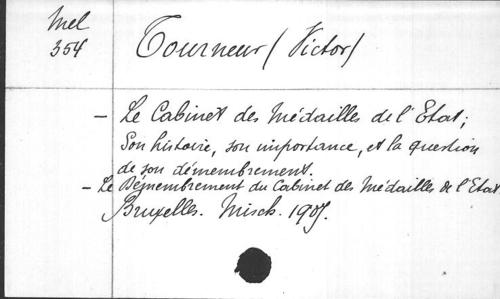 Mel
354
Tourneur (Victor)
- Le Cabinet des Médailles de l'Etat;
Son histoire, son importance, et la question
de son démembrement.
- Le Démembrement du Cabinet des Médailles de l'Etat
Bruxelles. Misch.